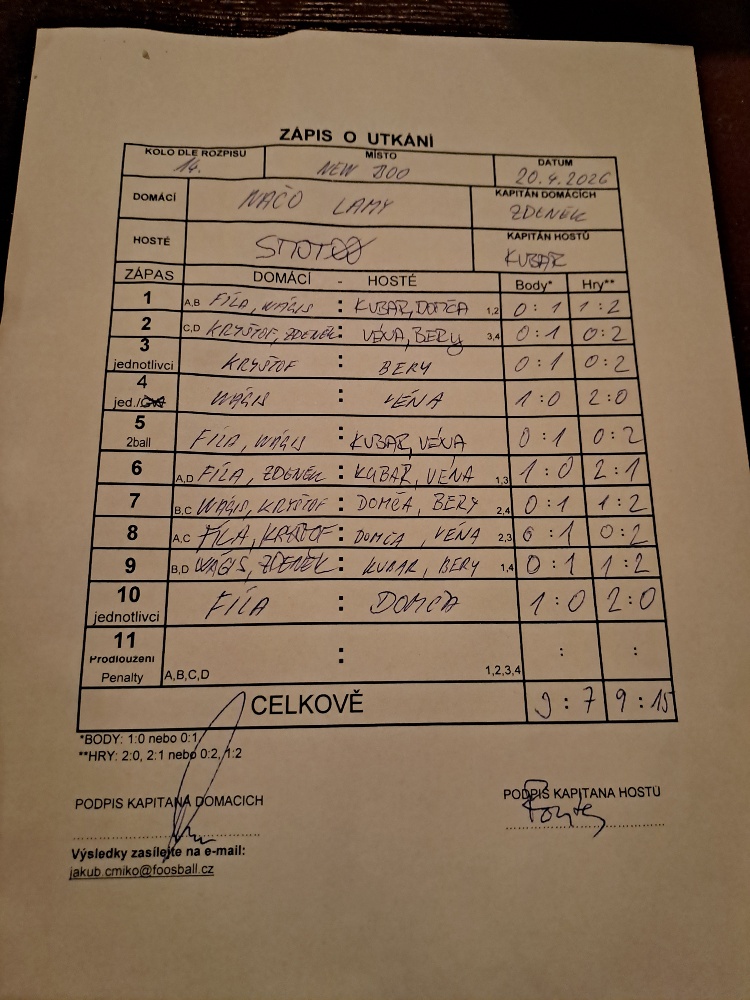 ZÁPIS O UTKÁNÍ
KOLO DLE ROZPISU MÍSTO DATUM
14. NEW BOO 20.4.2026
DOMÁCÍ NAČO LAMY KAPITÁN DOMÁCÍCH
ZDENĚK
HOSTÉ KAPITÁN HOSTŮ
KUBAR
ZÁPAS DOMÁCÍ - HOSTÉ Body* Hry**
1 A,B FÍLA, WÁGIS : KUBAR, DOMČA 1,2 0 : 1 1 : 2
2 C,D KRYŠTOF, ZDENEK : VÉNA, BERY 3,4 0 : 1 0 : 2
3 jednotlivci KRYŠTOF : BERY 0 : 1 0 : 2
4 jed./ WÁGIS : VÉNA 1 : 0 2 : 0
5 2ball FÍLA, WÁGIS : KUBAR, VÉNA 0 : 1 0 : 2
6 A,D FÍLA, ZDENEK : KUBAR, VÉNA 1,3 1 : 0 2 : 1
7 B,C WÁGIS, KRYŠTOF : DOMČA, BERY 2,4 0 : 1 1 : 2
8 A,C FÍLA, KRYŠTOF : DOMČA, VÉNA 2,3 0 : 1 0 : 2
9 B,D WÁGIS, ZDENEK : KUBAR, BERY 1,4 0 : 1 1 : 2
10 jednotlivci FÍLA : DOMČA 1 : 0 2 : 0
11 : : :
Prodloužení
Penalty A,B,C,D 1,2,3,4
CELKOVĚ 3 : 7 9 : 15
*BODY: 1:0 nebo 0:1
**HRY: 2:0, 2:1 nebo 0:2, 1:2
PODPIS KAPITANA DOMACICH PODPIS KAPITANA HOSTU
Výsledky zasílejte na e-mail:
jakub.cmiko@foosball.cz